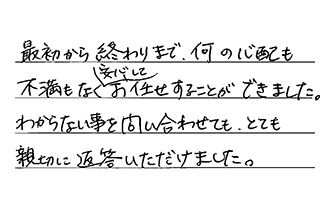 最初から終わりまで、何の心配も
不満もなく安心してお任せすることができました。
わからない事を問い合わせても、とても
親切に返答いただけました。